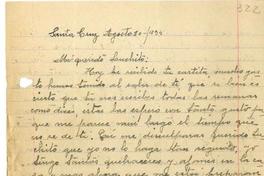 322
Santa Cruz Agosto 20-1934
Mi querido Luchito:
Hoy he recibido tu cartita, mucho gus-
to hemos tenido al saber de tí que si bien es
cierto que tu nos escribes todas las semanas
como dices, estas las espero con tanto gusto por
que me parece muy largo el tiempo que
no se de ti. Con me disculparas querido Lu-
chito que yo no lo haga tan seguido, yo
tengo tantos quehaceres, y afanes en la ca-